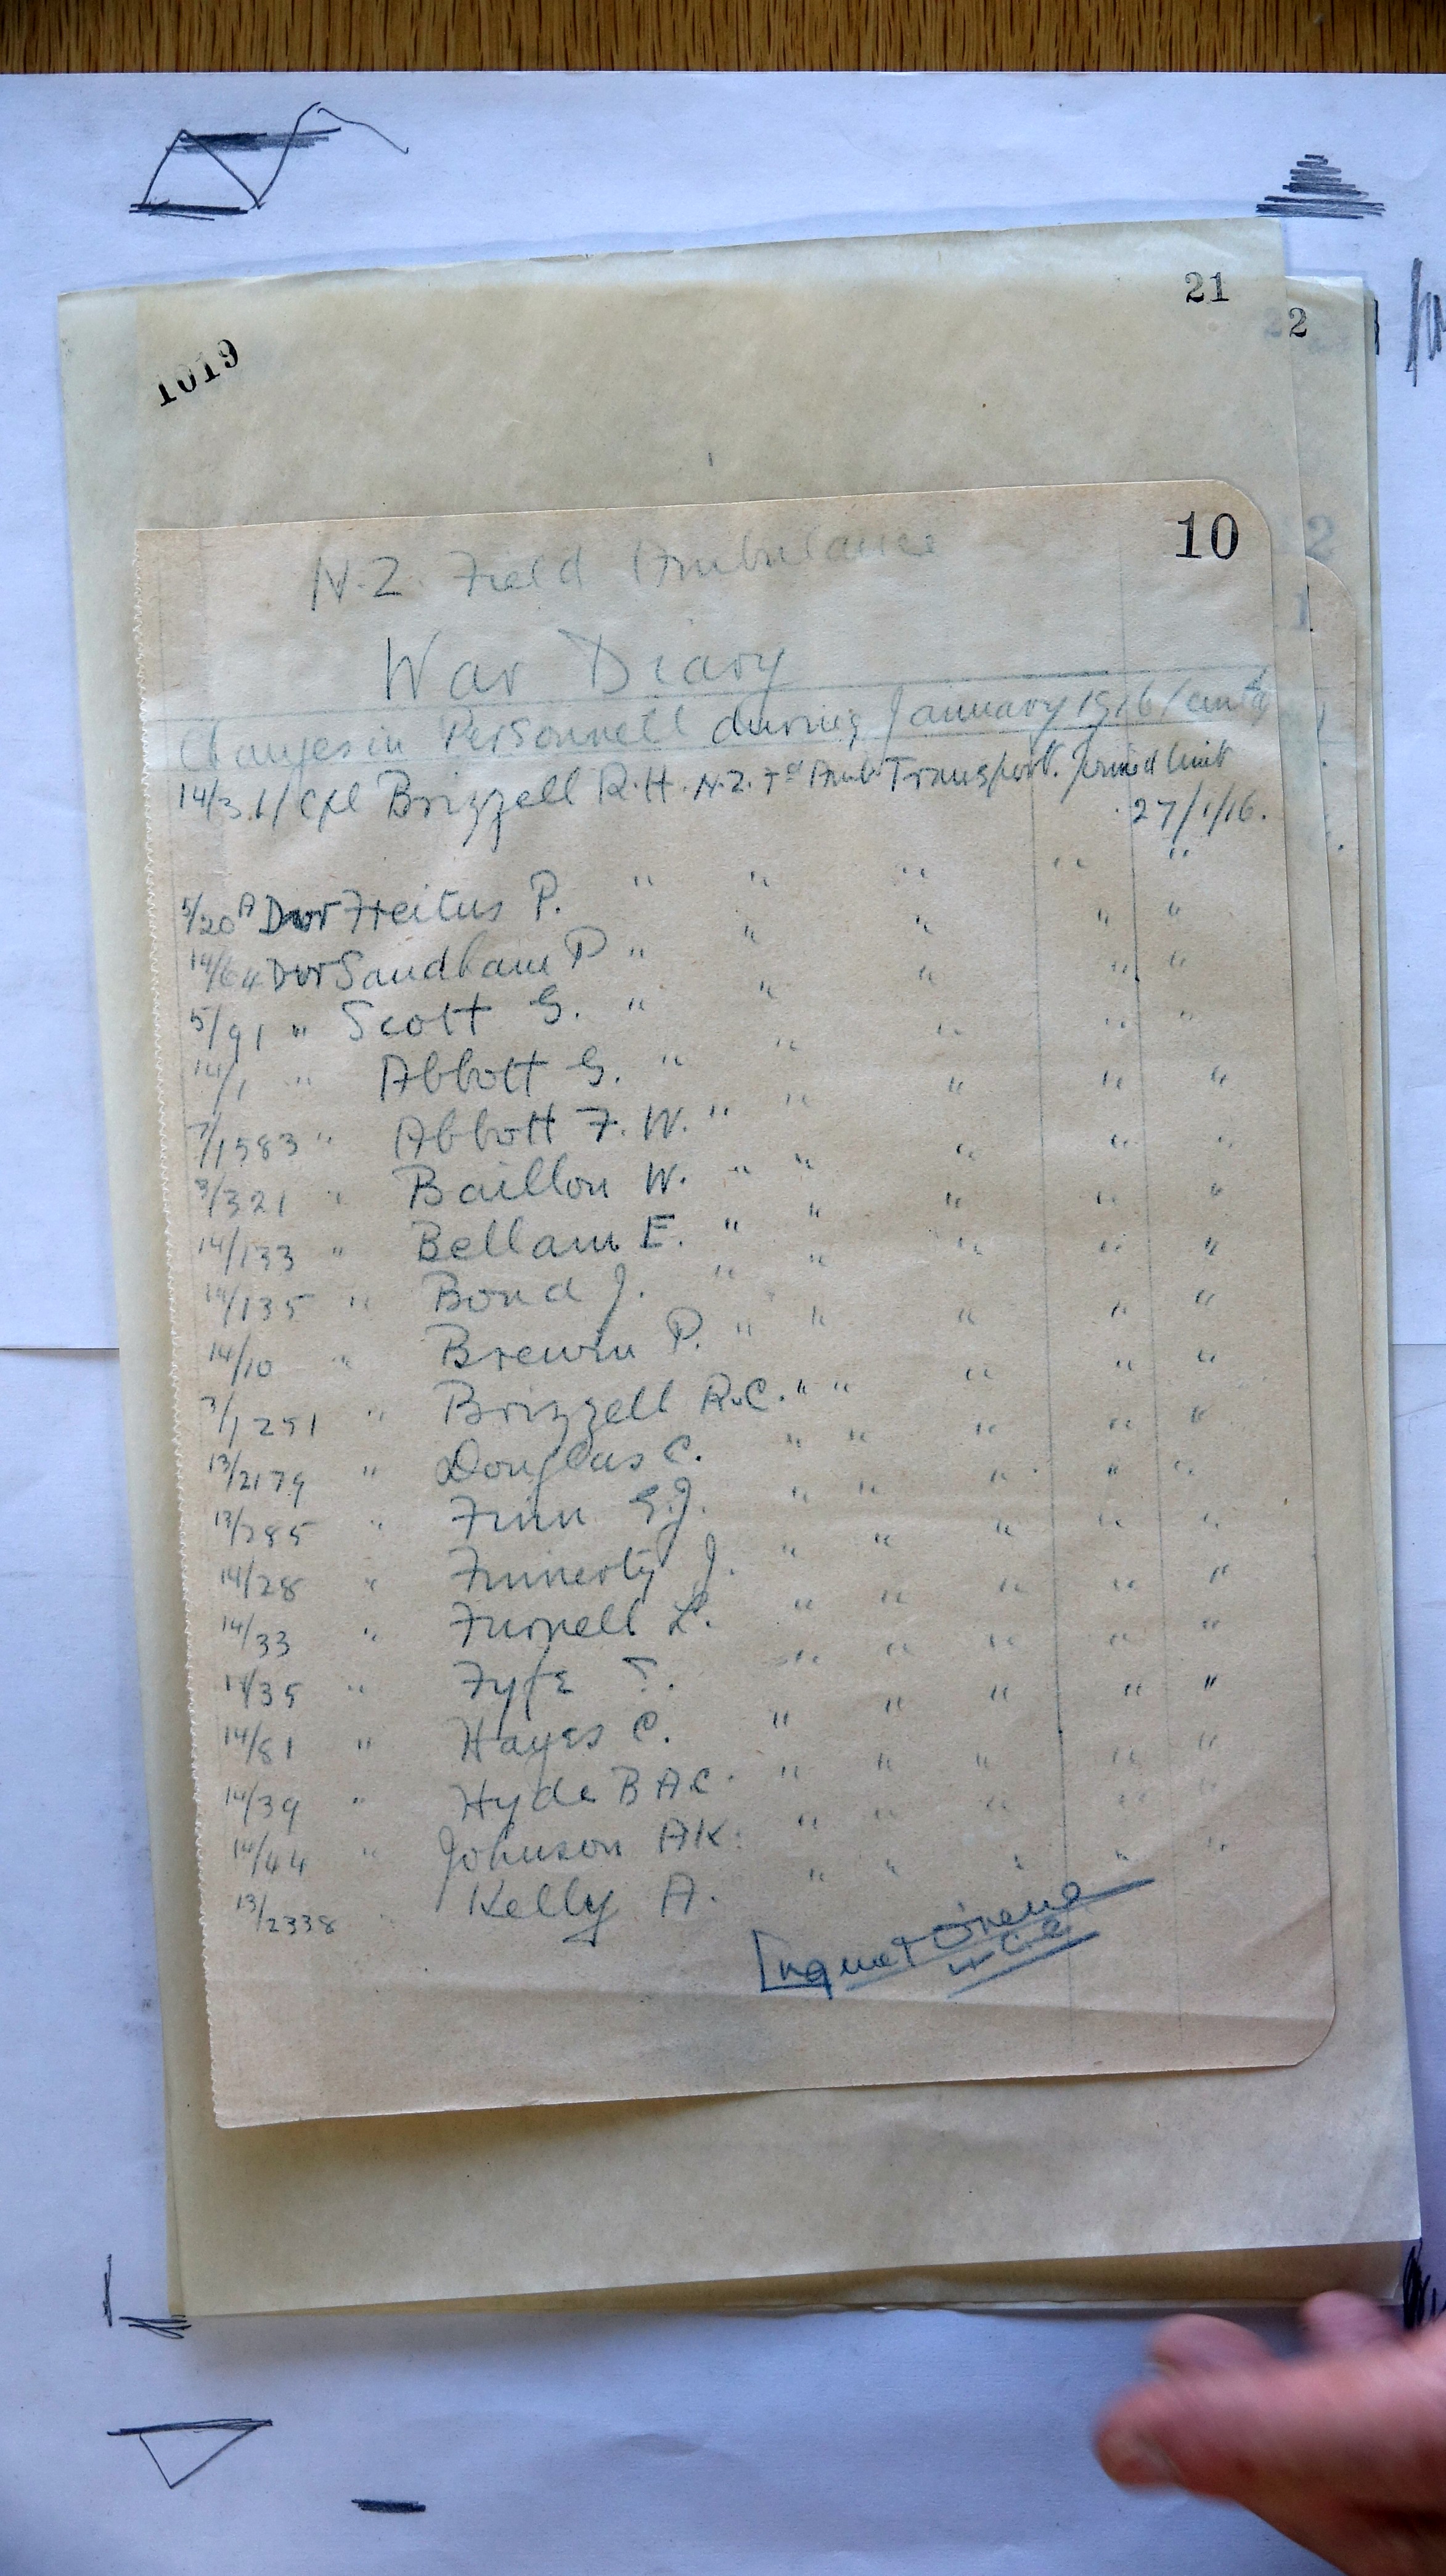 21
2
1019
10
N.Z. Field Ambulance
War Diary
Changes in Personnell during January 1916
14/3.1/Cpl Brizzell R.H. N.Z. Fd Amb. Transport. Joined Unit
27/1/16.
5/20A Dvr Freitus P. " " " " "
14/64 Dvr Sandham P " " " " "
5/91 " Scott G. " " " " "
14/1 " Abbott G. " " " " "
7/1583 " Abbott F. W. " " " " "
3/321 " Baillon W. " " " " "
14/133 " Bellam E. " " " " "
14/135 " Bond J. " " " " "
14/10 " Brewin P. " " " " "
7/1251 " Brizzell R.C. " " " " "
13/2179 " Douglas C. " " " " "
13/285 " Finn G.J. " " " " "
14/28 " Finnerty J. " " " " "
14/33 " Furnell L. " " " " "
14/35 " Fyfe T. " " " " "
14/81 " Hayes C. " " " " "
14/39 " Hyde B A C. " " " " "
14/44 " Johnson A K. " " " " "
13/2338 " Kelly A. " " " " "